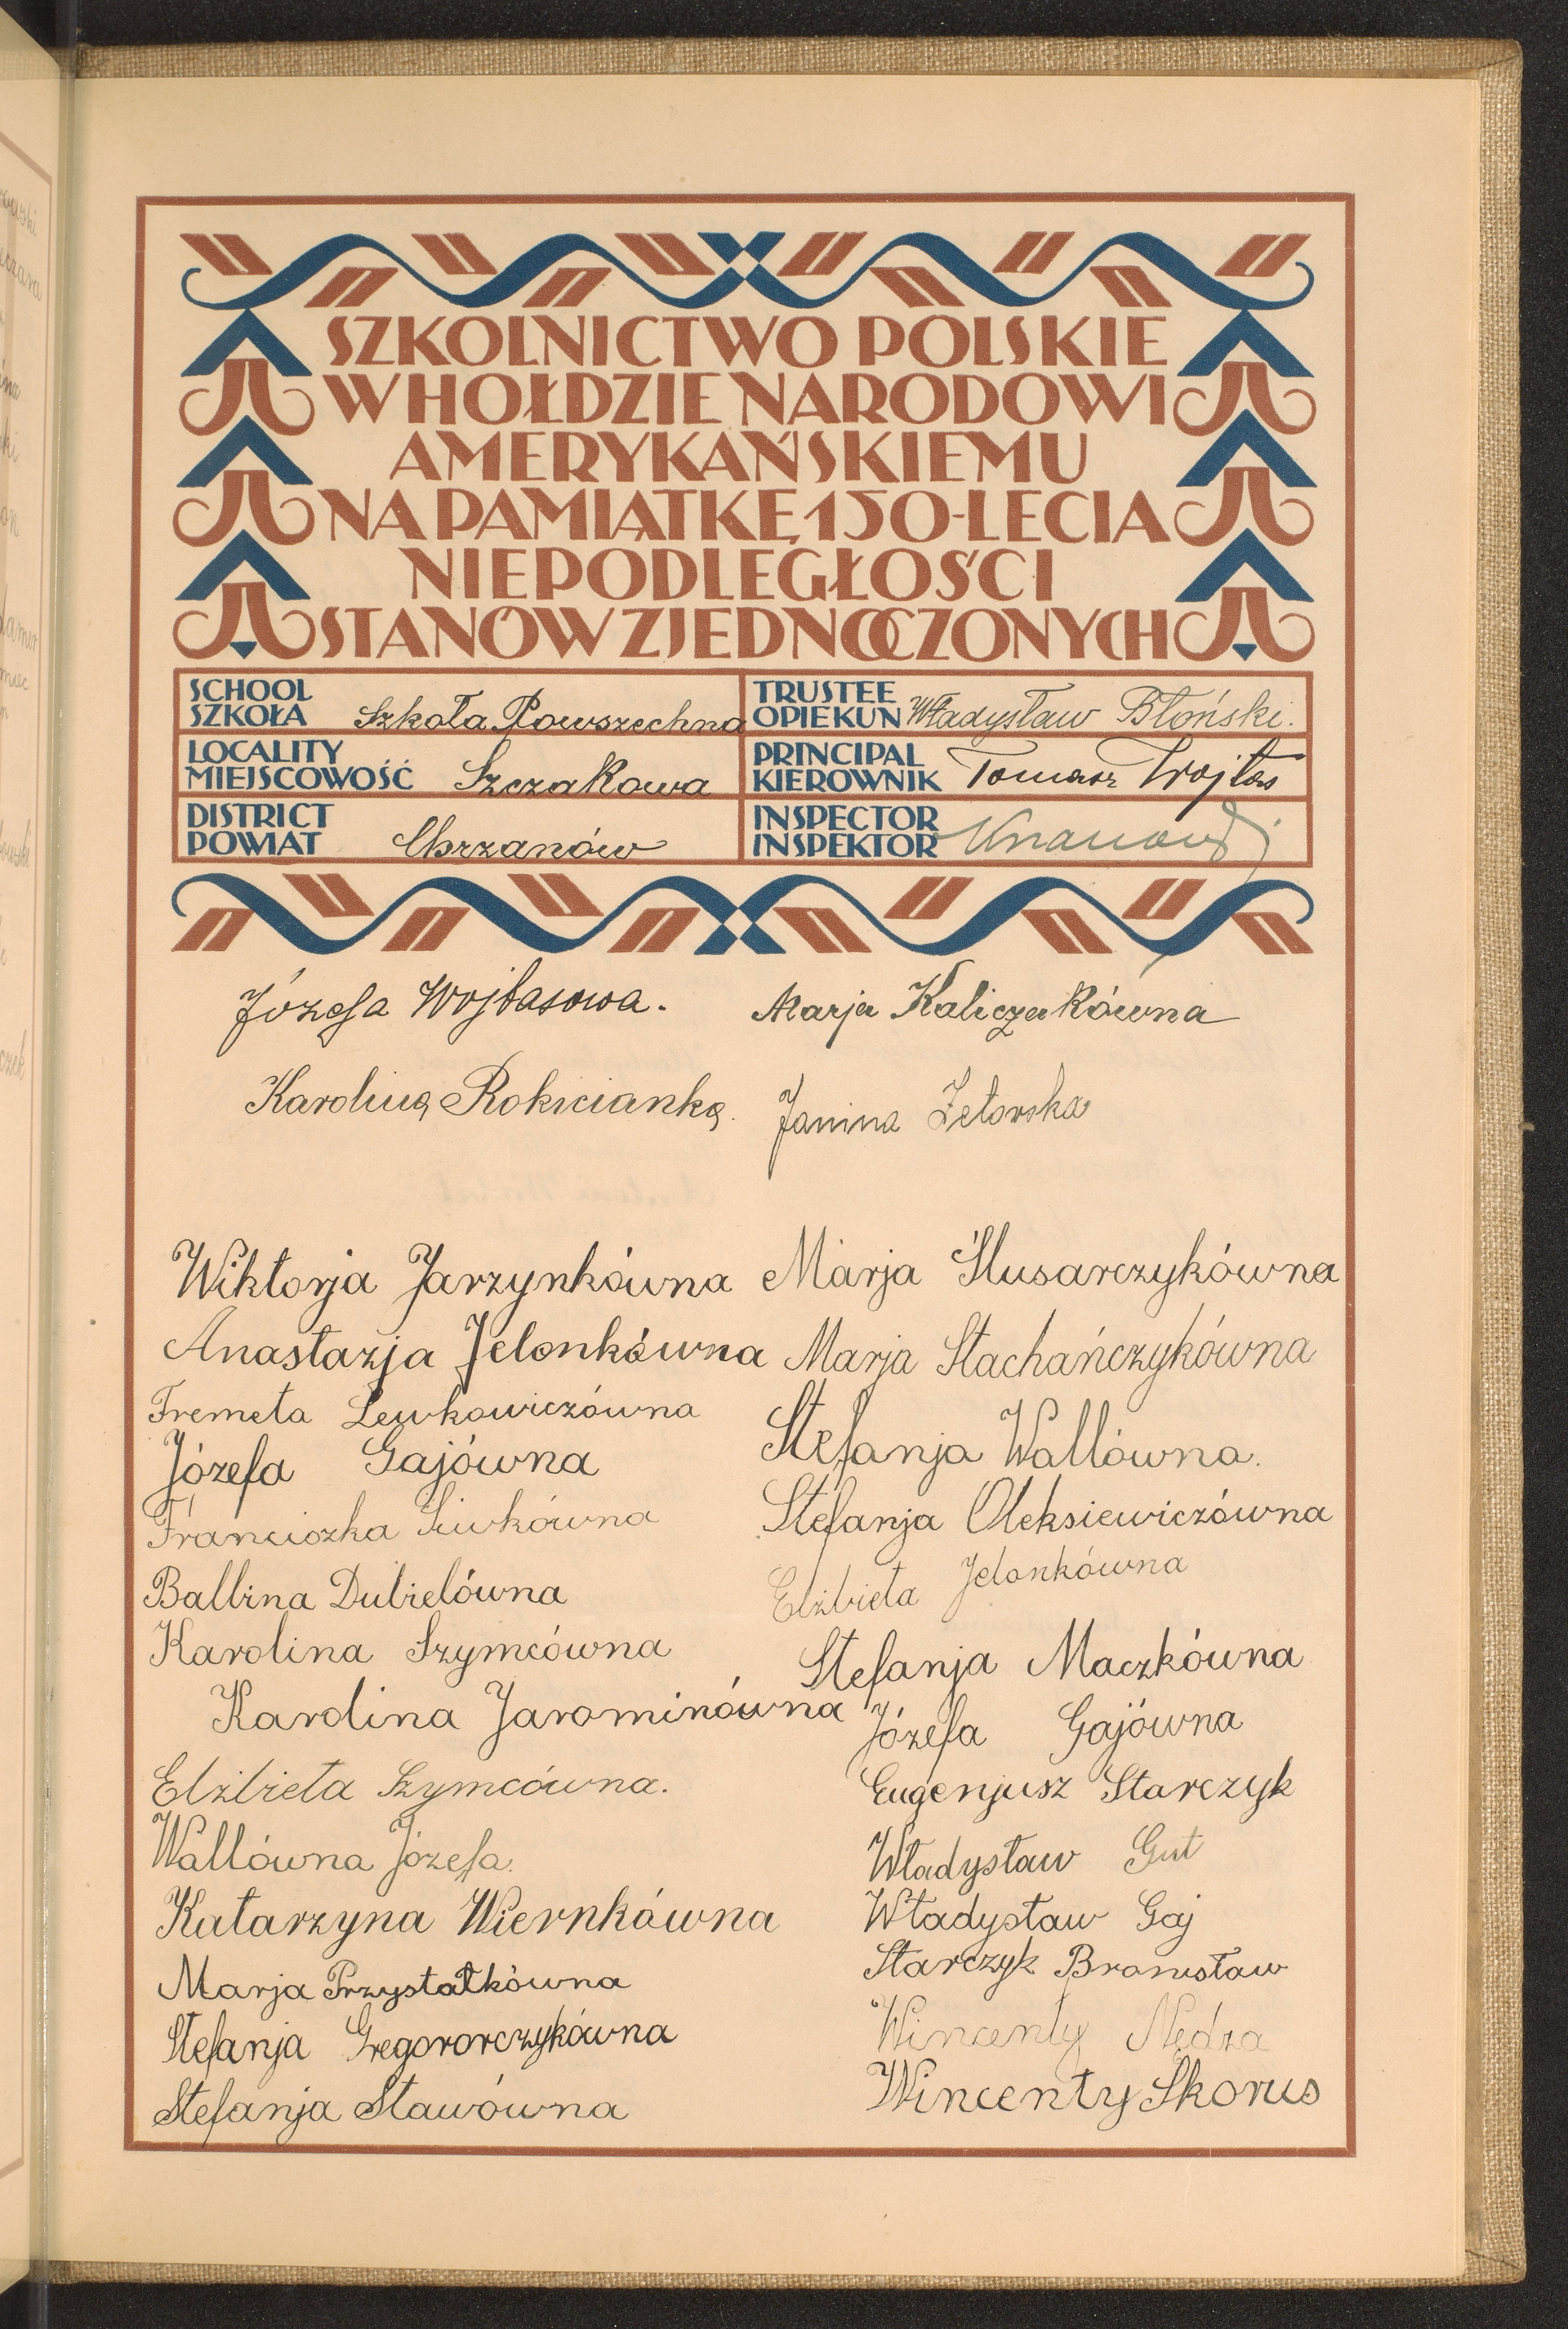 SZKOLNICTWO POLSKIE
W HOŁDZIE NARODOWI
AMERYKAŃSKIEMU
NA PAMIĄTKĘ 150-LECIA
NIEPODLEGŁOŚCI
STANÓW ZJEDNOCZONYCH
SCHOOL
SZKOŁA Szkoła Powszechna
LOCALITY
MIEJSCOWOŚĆ Szczakowa
DISTRICT
POWIAT Chrzanów
TRUSTEE
OPIEKUN Władysław Błoński.
PRINCIPAL
KIEROWNIK Tomasz Wojtas
INSPECTOR
INSPEKTOR
Józefa Wojtasowa.
Marja Kaliczakówna
Karolina Rokicianka.
Janina
Wiktorja Jarzynkówna
Anastazja Jelonkówna
Fremeta Lewkowiczówna
Józefa Gajówna
Franciszka Siwkówna
Balbina Dubielówna
Karolina Szymcówna
Karolina Jarominówna
Elżbieta Szymcówna.
Wallówna Józefa.
Katarzyna Wiernkówna
Marja Przystałkówna
Stefanja Gregororczykówna
Stefanja Stawówna
Marja Ślusarczykówna
Marja Stachańczykówna
Stefanja Wallówna.
Stefanja Oleksiewiczówna
Elżbieta Jelonkówna
Stefanja Maczkówna
Józefa Gajówna
Eugenjusz Starczyk
Władysław Gut
Władysław Gaj
Starczyk Bronisław
Wincenty Nędza
Wincenty Skorus